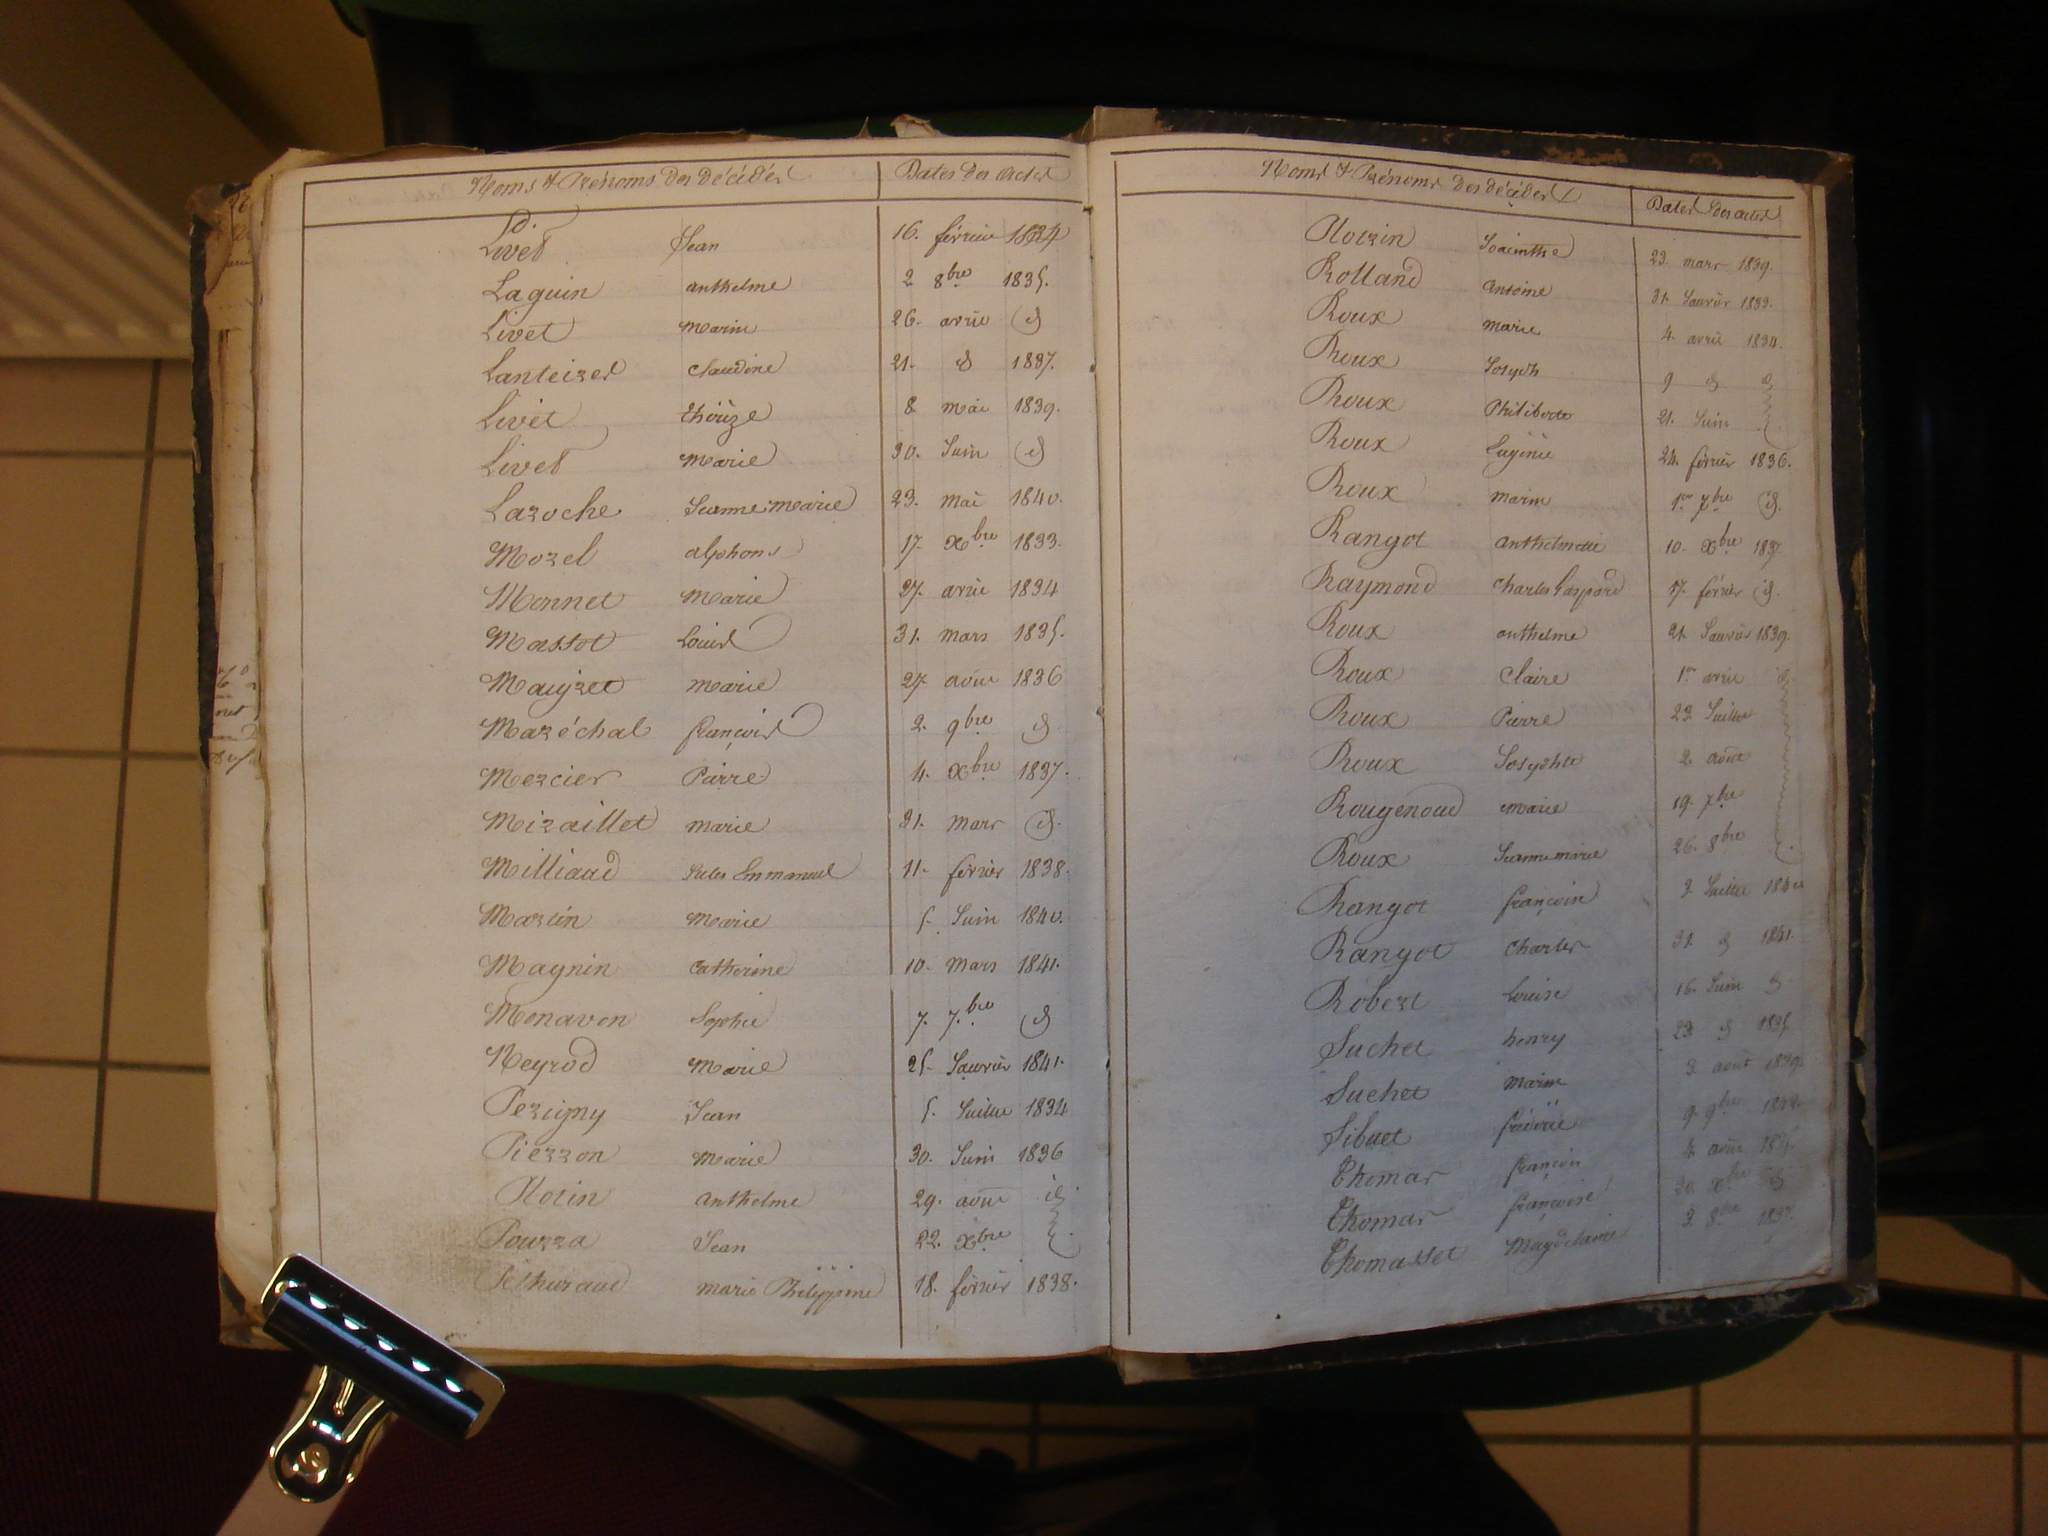 Noms & Prénoms des décédés Dates des actes
D.
Livet Jean 16. février 1834
Laguin anthelme 2 8bre 1835.
Livet Marin 26. avril id
Lanteires Claudine 21. d 1837.
Livet thérèze 8 mai 1839.
Livet Marie 30. Juin id
Laroche Jeanne marie 23. mai 1840.
Morel alphons 17. Xbre 1833.
Monnet Marie 27. avril 1834
Massot Louis 31. mars 1835.
Mayret marie 27 aout 1836
Maréchal françois 2. 9bre id
Mercier Pierre 4. Xbre 1837.
Miraillet marie 31. Mars id.
Milliaud Jules Emmanuel 11. février 1838.
Martin Marie 5. Juin 1840.
Magnin Catherine 10. Mars 1841.
Monavon Sophie 7. 7.bre id
Neyrod Marie 25. Janvier 1841.
Perigny Jean 5. Juillet 1834
Pierron Marie 30. Juin 1836
Plotin anthelme 29. aout id.
Pourra Jean 22. Xbre
Péthuraud marie Philippine 18. février 1838.
Noms & Prénoms des décédés Dates des actes
Joacinthe 23. mars 1839.
Rolland antoine 31. Janvier 1833.
Roux marie 4. avril 1834.
Roux Joseph 9 d d
Roux Philiberte 21. Juin
Roux Eugénie 24. février 1836.
Roux marin 1er 7bre id.
Rangot anthelmette 10. Xbre 1837.
Raymond Charles Gaspard 17. février id.
Roux anthelme 21. Janvier 1839.
Roux Claire 1er avril id
Roux Pierre 23. Juillet
Roux Josephte 2. aout
Rougenoud marie 19. 7bre
Roux Jeanne marie 26. 8bre
Rangot françois 3. Juillet 1840
Rangot Charles 31. d 1841.
Robert Louise 16. Juin d.
Suchet henry 23. d 1835
Suchet Marin 3. aout 1839.
Sibuet fréderic 9. 9bre
Thomas françois 4. aout
Thomas françoise 30. Xbre id
Thomasset Magdelaine 3. 8bre 1837.